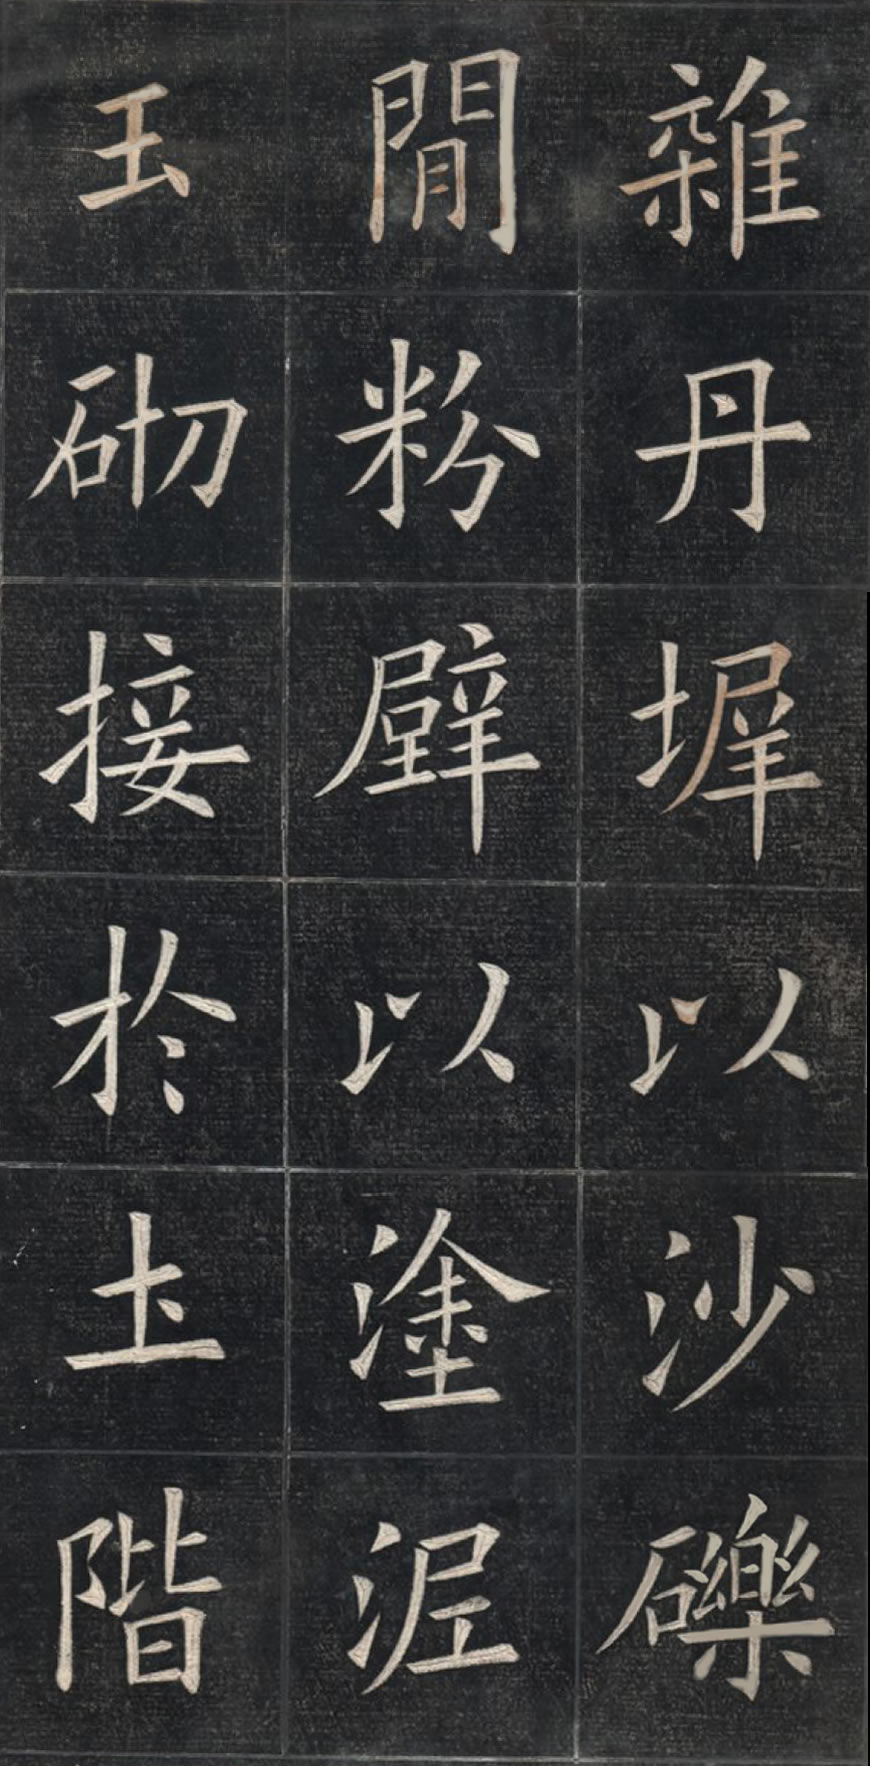 雜丹墀以沙礫
間粉壁以塗泥
玉砌接於土階